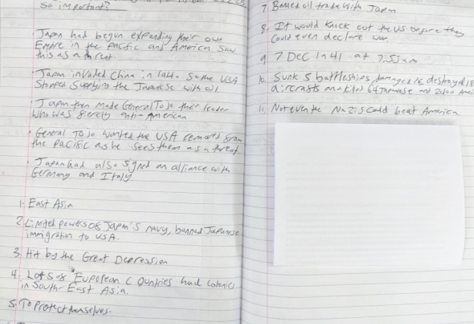 so important?
Japan had begun expanding their own
Empire in the Pacific and American saw
this as a threat
Japan invaded China in so the USA
stopped the Japanese with oil
Japan then made General Tojo their leader
who was anti-American
General Tojo wanted the USA removed from
the Pacific as he sees them as a threat
Japan had also signed an alliance with
Germany and Italy
1. East Asia
2. Limited powers of Japan's navy, banned Japanese
immigration to USA.
3. Hit by the Great Depression
4. Lots of European Countries had colonies
in South East Asia.
5. To Protect themselves.
7. Banned oil trade with Japan
8. It would knock out the US before they
could even declare war
9. 7 Dec 1941 at 7:55am
10. Sunk 5 battleships damaged destroyed
aircrafts and killed 64 Japanese and
11. Not even the Nazis could beat America